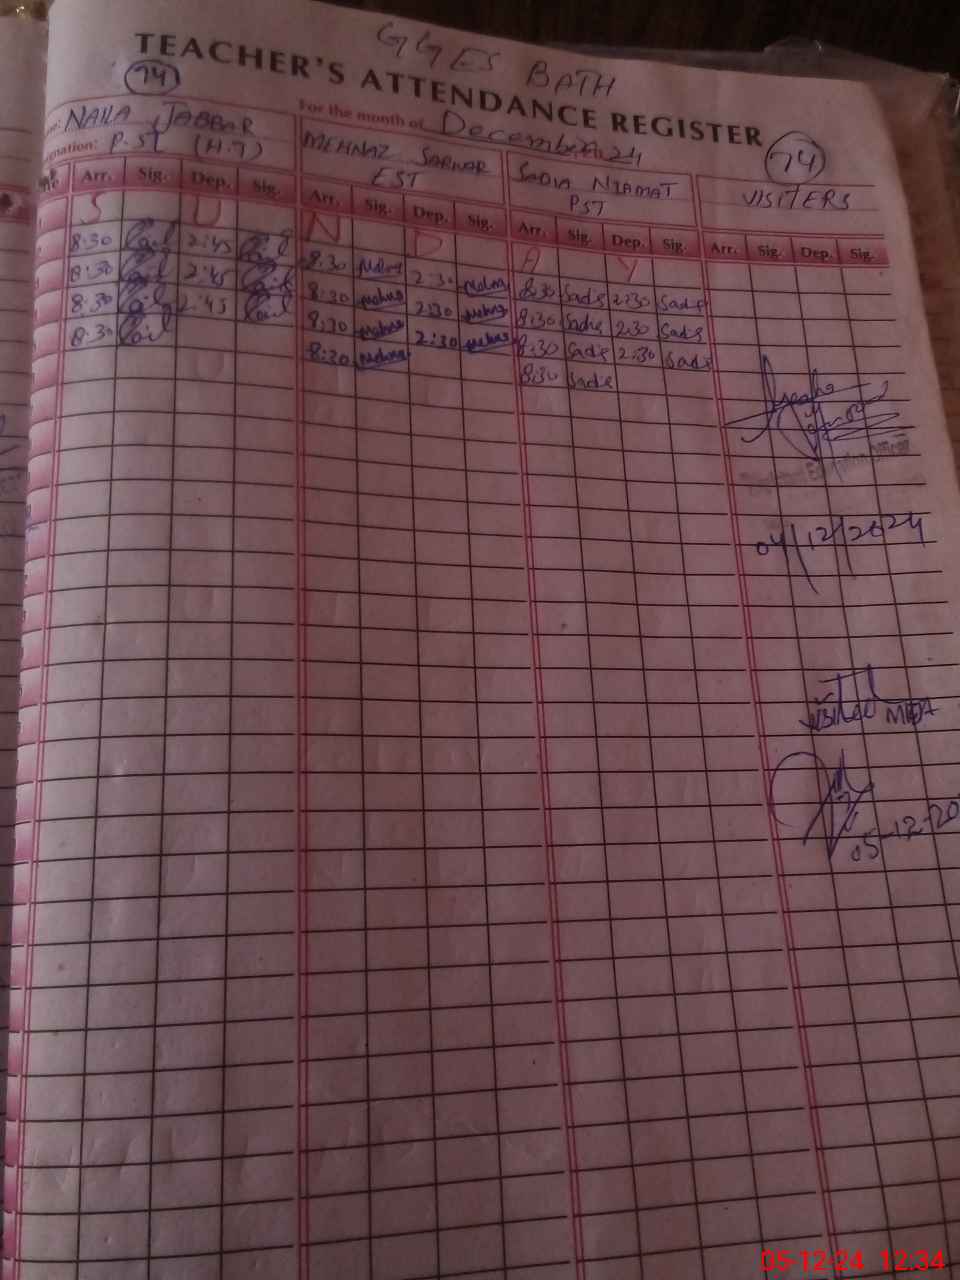 GGES BATH
TEACHER'S ATTENDANCE REGISTER
74
For the month of December 2024
74
NAILA JABBAR
MEHNAZ SARWAR
SADIA NIAMAT
VISITERS
Designation: P.ST (H.T)
EST
PST
Arr. Sig. Dep. Sig. Arr. Sig. Dep. Sig. Arr. Sig. Dep. Sig. Arr. Sig. Dep. Sig.
S U N D A Y
8:30 2:45 8:30 Mehnaz 2:30 Mehnaz 8:30 Sadia 2:30 Sadia
8:30 2:45 8:30 Mehnaz 2:30 Mehnaz 8:30 Sadia 2:30 Sadia
8:30 2:45 8:30 Mehnaz 2:30 Mehnaz 8:30 Sadia 2:30 Sadia
8:30 8:30 Mehnaz 8:30 Sadia
Education Officer
04/12/2024
visited MEA
05-12-20
05-12-24 12:34